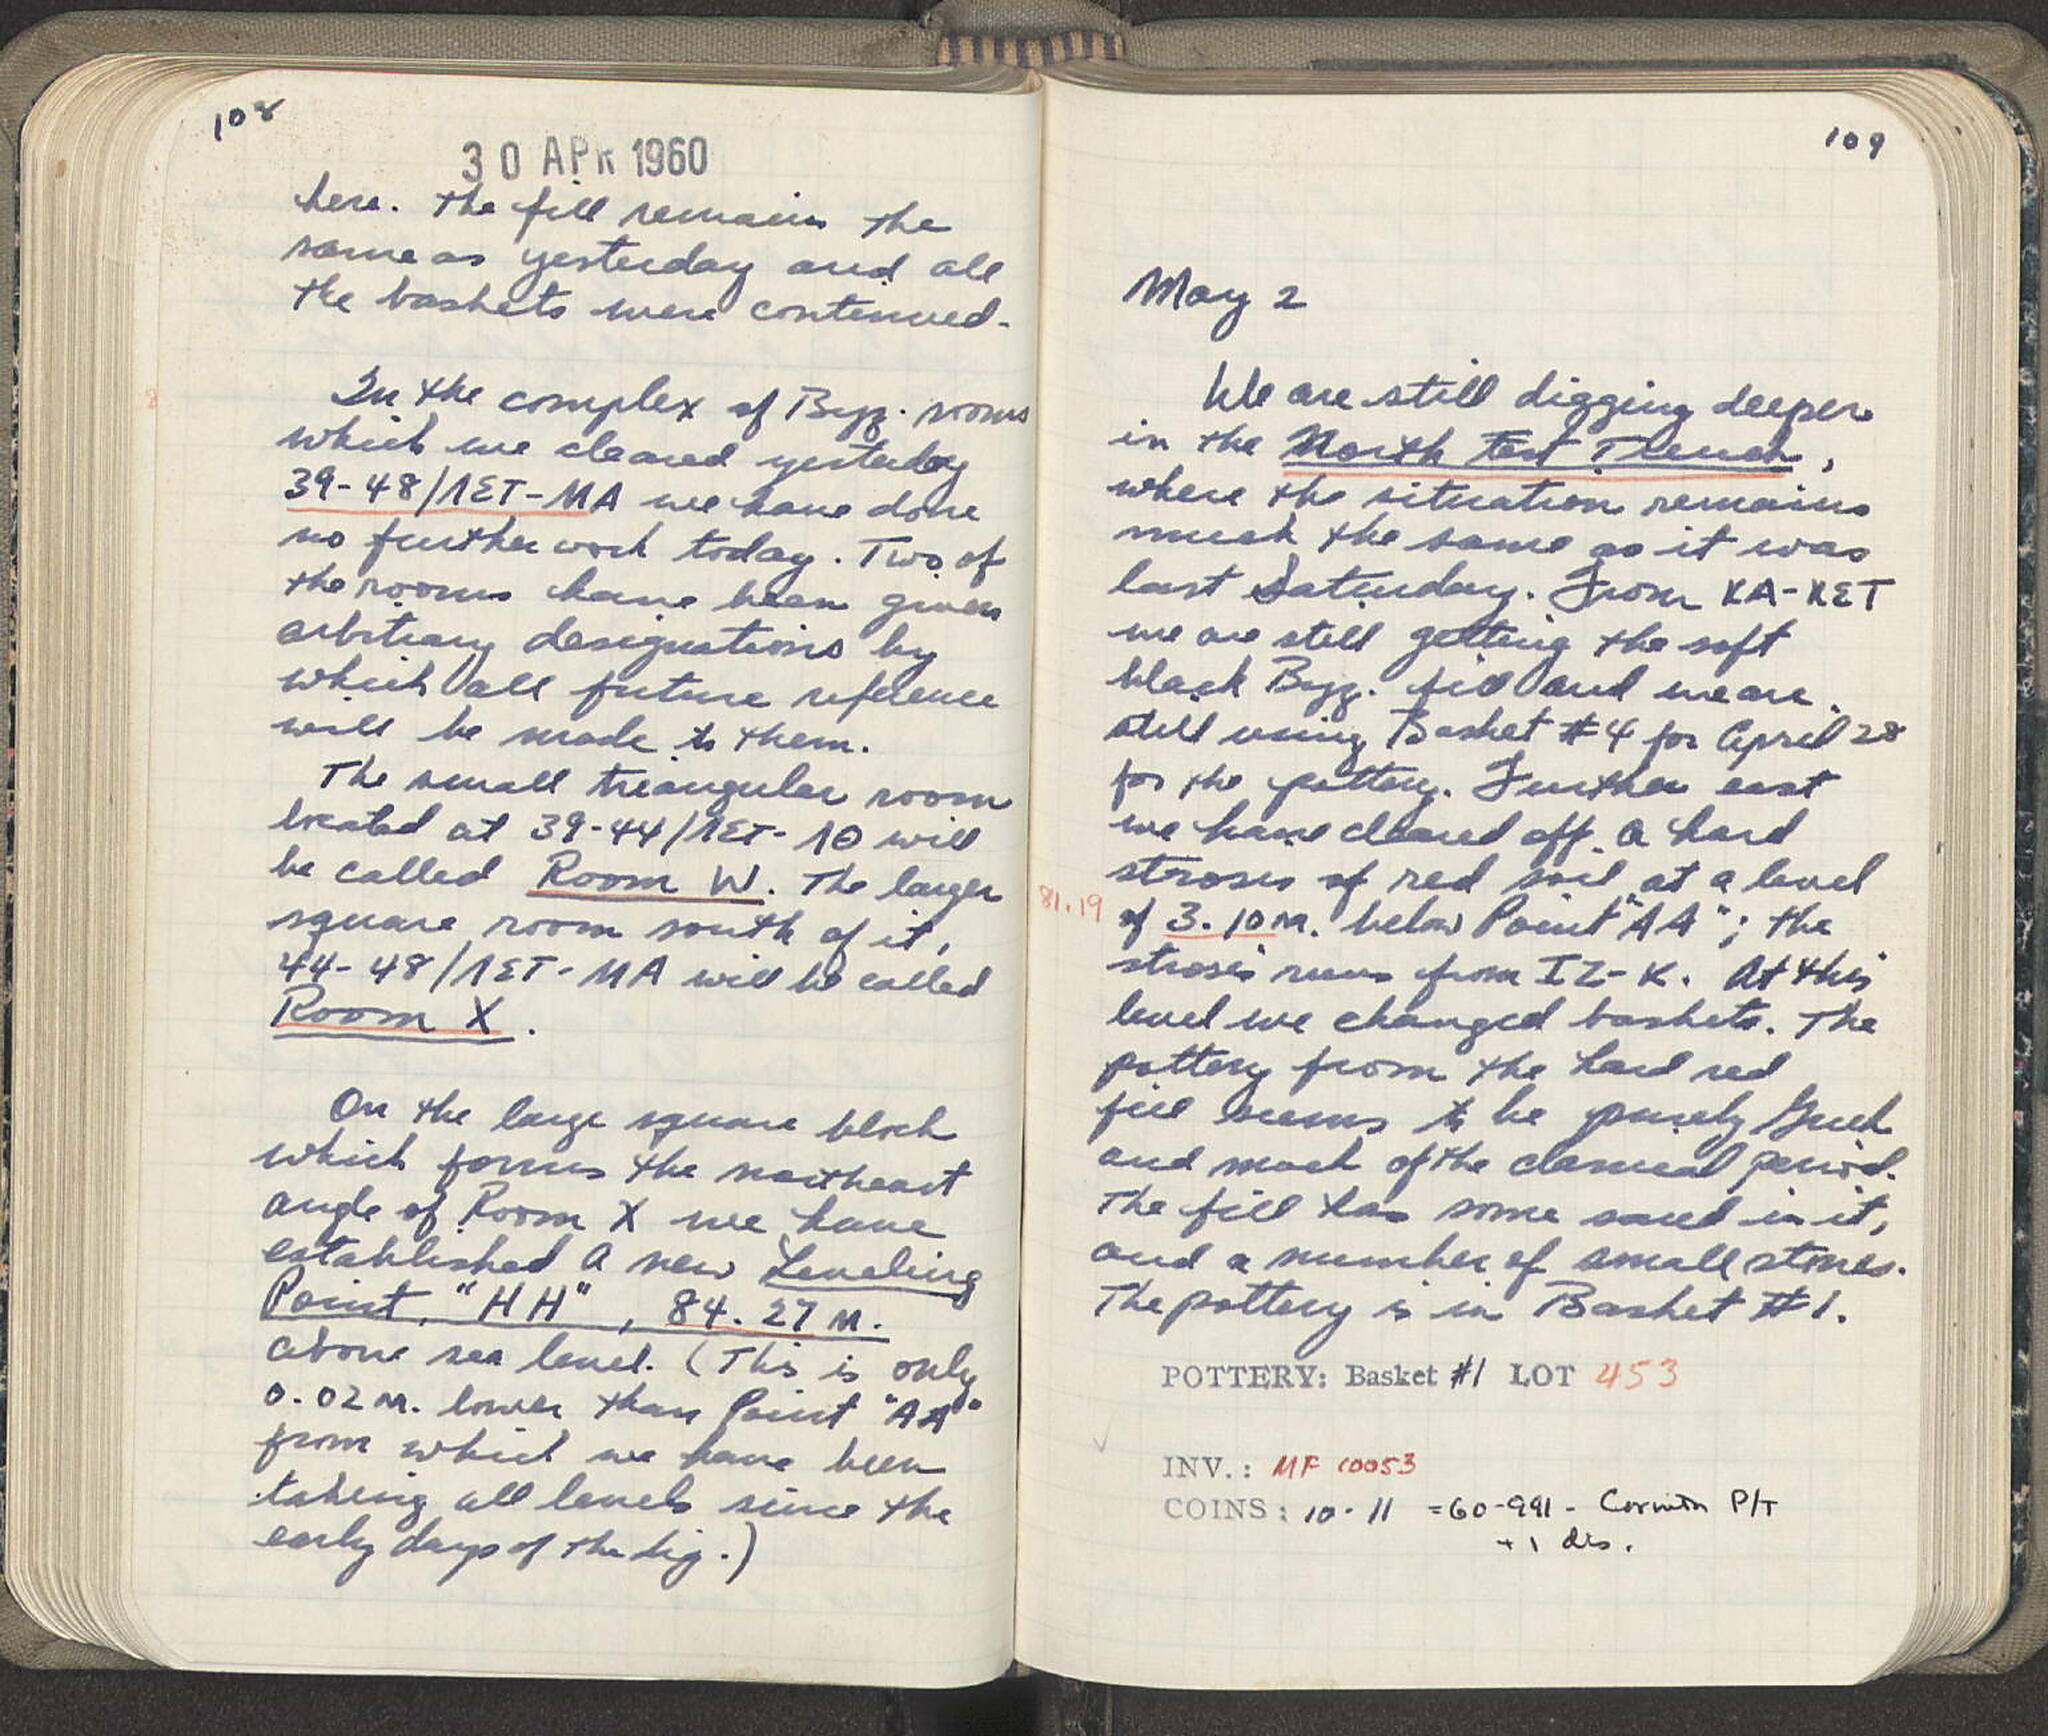 108
30 APR 1960
here. The fill remains the
same as yesterday and all
the baskets were continued.
In the complex of Byz. rooms
which we cleared yesterday
39-48/ΛΣΤ-ΜΑ we have done
no further work today. Two of
the rooms have been given
arbitrary designations by
which all future reference
will be made to them.
The small triangular room
located at 39-44/ΛΣΤ-ΛΘ will
be called Room W. The larger
square room south of it,
44-48/ΛΣΤ-ΜΑ will be called
Room X.
On the large square block
which forms the northeast
angle of Room X we have
established a new Leveling
Point, "HH", 84.27 M.
above sea level. (This is only
0.02 M. lower than Point "AA"
from which we have been
taking all levels since the
early days of the dig.)
109
May 2
We are still digging deeper
in the North Test Trench,
where the situation remains
much the same as it was
last Saturday. From ΚΑ-ΚΣΤ
we are still getting the soft
black Byz. fill and we are
still using Basket #4 for April 28
for the pottery. Further east
we have cleared off a hard
stroses of red soil at a level
81.19
of 3.10 M. below Point "AA"; the
strosis runs from ΙΖ-Κ. At this
level we changed baskets. The
pottery from the hard red
fill seems to be purely Greek
and much of the classical period.
The fill has some sand in it,
and a number of small stones.
The pottery is in Basket #1.
POTTERY: Basket #1 LOT 453
INV.: MF 10053
COINS: 10-11 = 60-991 - Corinth P/T
+1 dis.